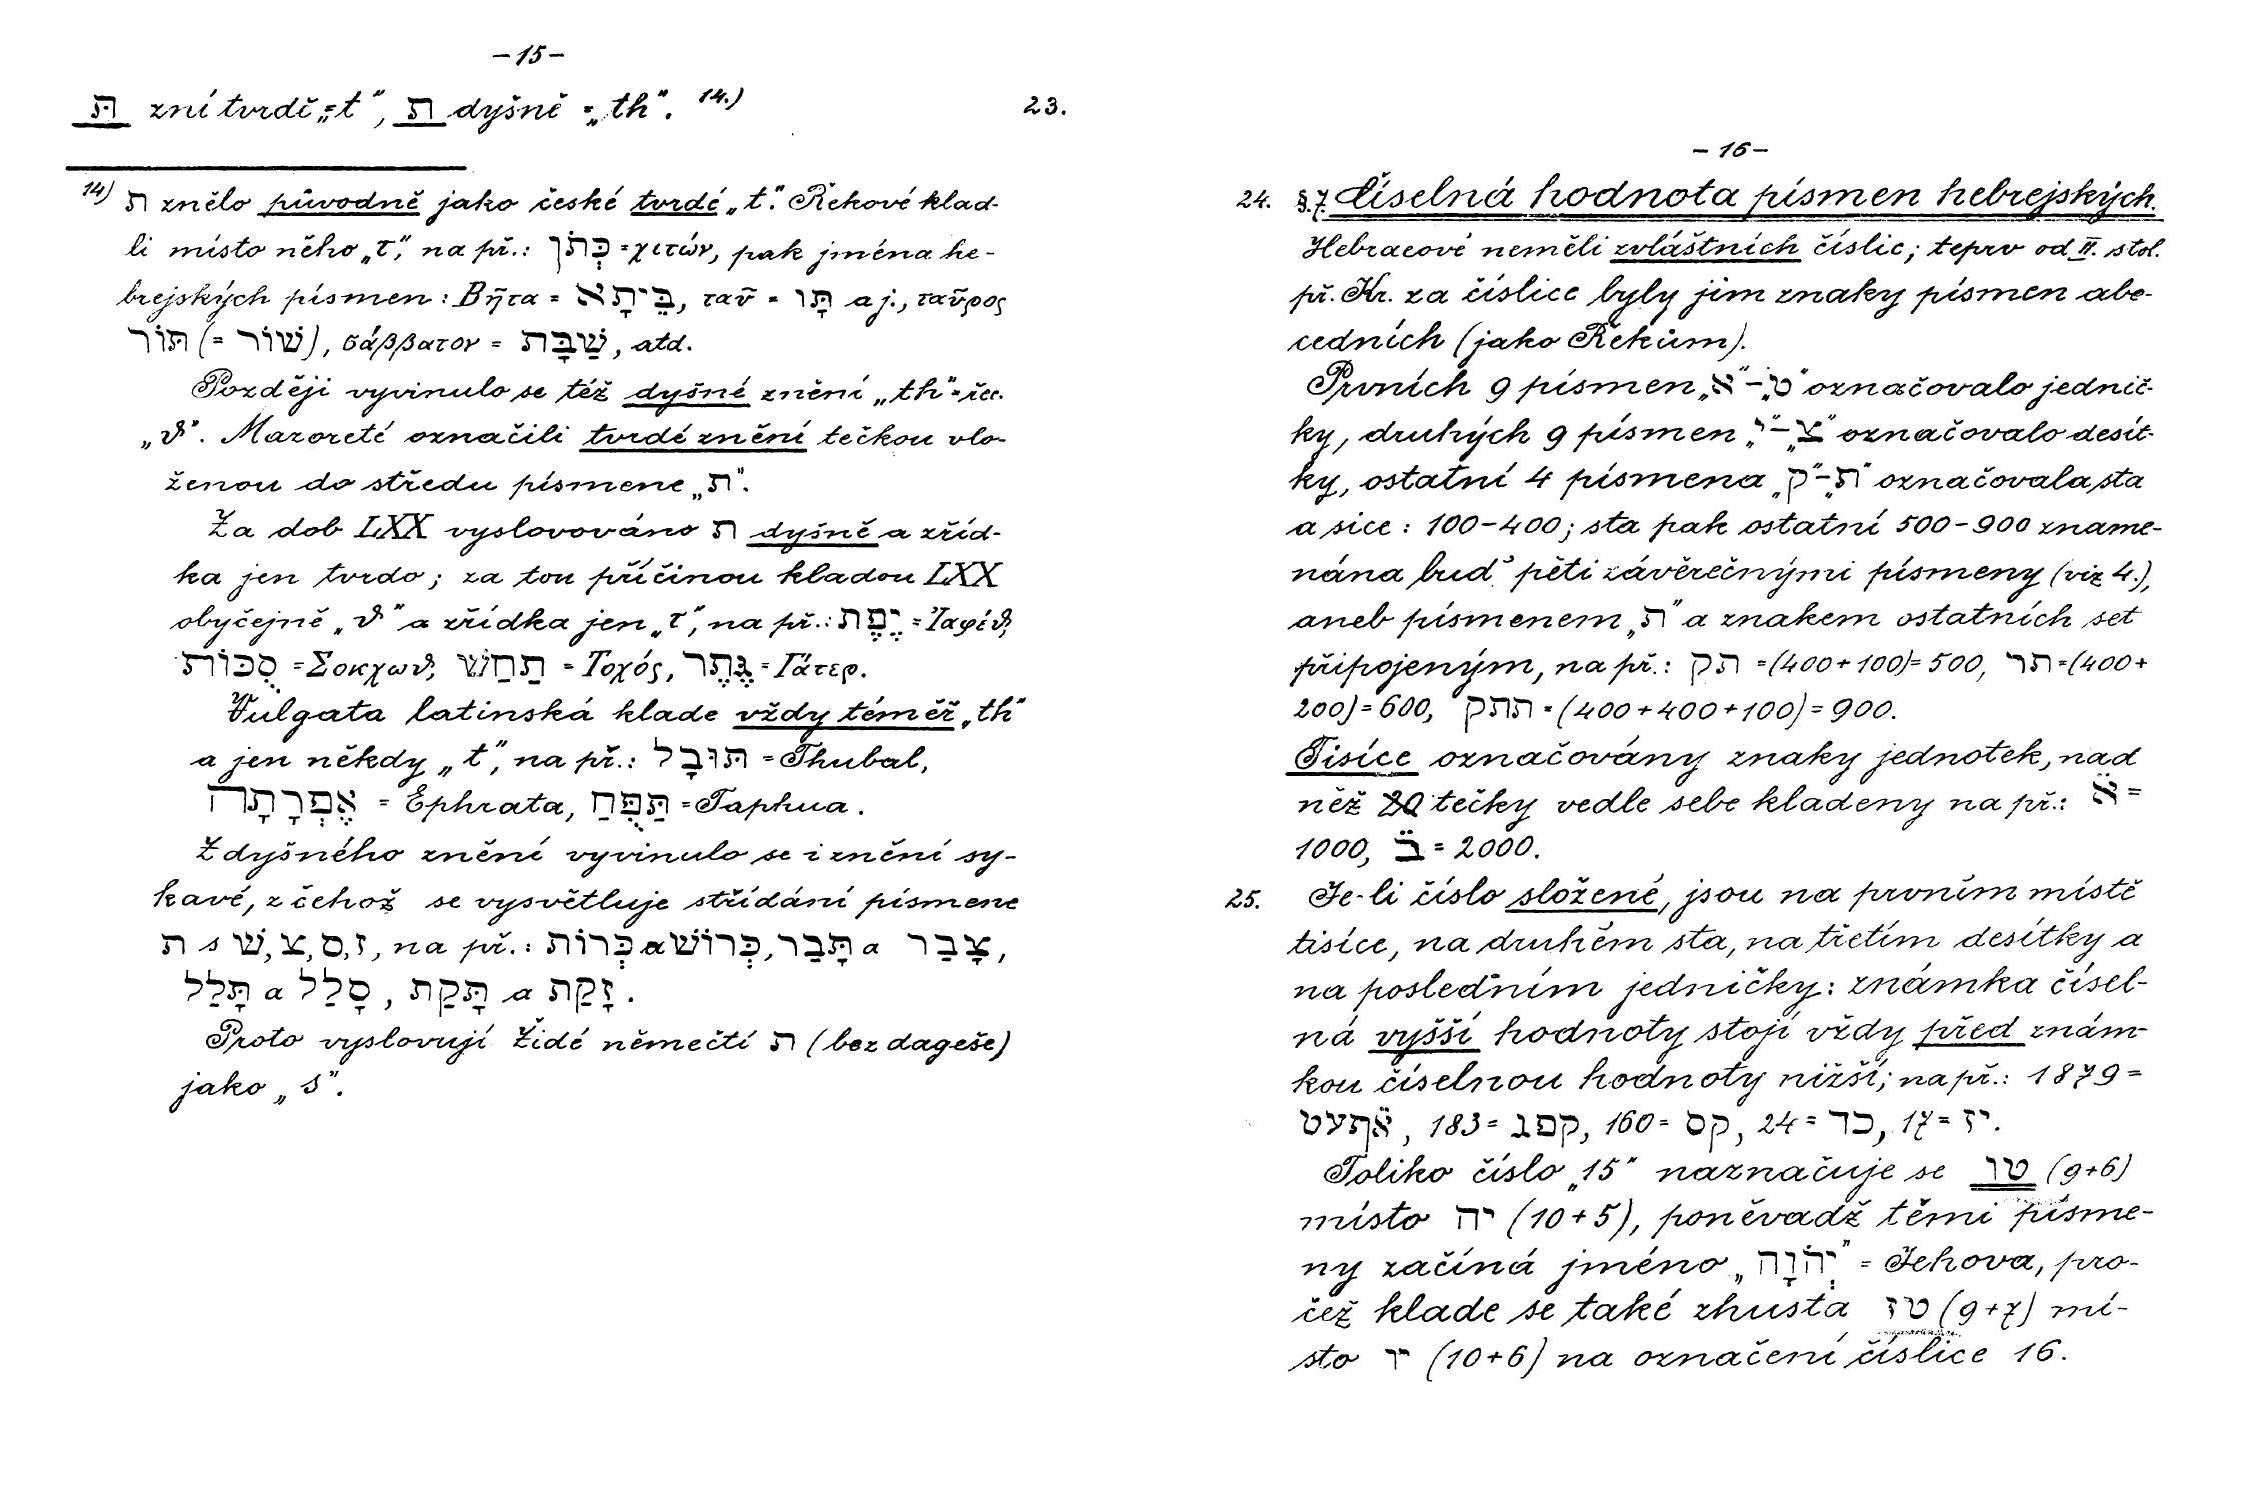 – 15 –
תּ zní tvrdě = „t“, ת dyšně = „th“. 14.) 23.
14) ת znělo původně jako české tvrdé „t“. Řekové klad-
li místo něho „τ“, na př.: כְּתֹן = χιτών, pak jména he-
brejských písmen: Βῆτα = בֵּיתָא, ταῦ = תָּו a j., ταῦρος
תּוֹר (= שׁוֹר), σάββατον = שַׁבָּת, atd.
Později vyvinulo se též dyšné znění „th“ = řec.
„ϑ“. Mazoreté označili tvrdé znění tečkou vlo-
ženou do středu písmene „ת“.
Za dob LXX vyslovováno ת dyšně a zříd-
ka jen tvrdo; za tou příčinou kladou LXX
obyčejně „ϑ“ a zřídka jen „τ“, na př.: יֶפֶת = Ἰαφέϑ,
סֻכּוֹת = Σοκχωϑ, תַחַשׁ = Τοχός, גֶּתֶר = Γάτερ.
Vulgata latinská klade vždy téměř „th“
a jen někdy „t“, na př.: תּוּבָל = Thubal,
אֶפְרָתָה = Ephrata, תַּפֻּחַ = Taphua.
Z dyšného znění vyvinulo se i znění sy-
kavé, z čehož se vysvětluje střídání písmene
ת s שׁ, צ, ס, ז, na př.: כְּרוֹת a כְּרוֹשׁ, תָּבַר a צָבַר,
תָּלַל a סָלַל, תָּקַת a זָקַת.
Proto vyslovují Židé němečtí ת (bez dageše)
jako „s“.
– 16 –
24. §.7. Číselná hodnota písmen hebrejských.
Hebraeové neměli zvláštních číslic; teprv od II. stol.
př. Kr. za číslice byly jim znaky písmen abe-
cedních (jako Řekům).
Prvních 9 písmen „א“–„ט“ označovalo jednič-
ky, druhých 9 písmen „י“–„צ“ označovalo desít-
ky, ostatní 4 písmena „ק“–„ת“ označovala sta
a sice: 100–400; sta pak ostatní 500–900 zname-
nána buď pěti závěrečnými písmeny (viz 4.),
aneb písmenem „ת“ a znakem ostatních set
připojeným, na př.: תק = (400+100) = 500, תר = (400+
200) = 600, תתק = (400+400+100) = 900.
Tisíce označovány znaky jednotek, nad
něž tečky vedle sebe kladeny na př.: א̈ =
1000, ב̈ = 2000.
25. Je-li číslo složené, jsou na prvním místě
tisíce, na druhém sta, na třetím desítky a
na posledním jedničky: známka čísel-
ná vyšší hodnoty stojí vždy před znám-
kou číselnou hodnoty nižší; na př.: 1879 =
א̈ףעט, 183 = קפג, 160 = קס, 24 = כד, 17 = יז.
Toliko číslo „15“ naznačuje se טו (9+6)
místo יה (10+5), poněvadž těmi písme-
ny začíná jméno „יְהֹוָה“ = Jehova, pro-
čež klade se také zhusta טז (9+7) mí-
sto יו (10+6) na označení číslice 16.